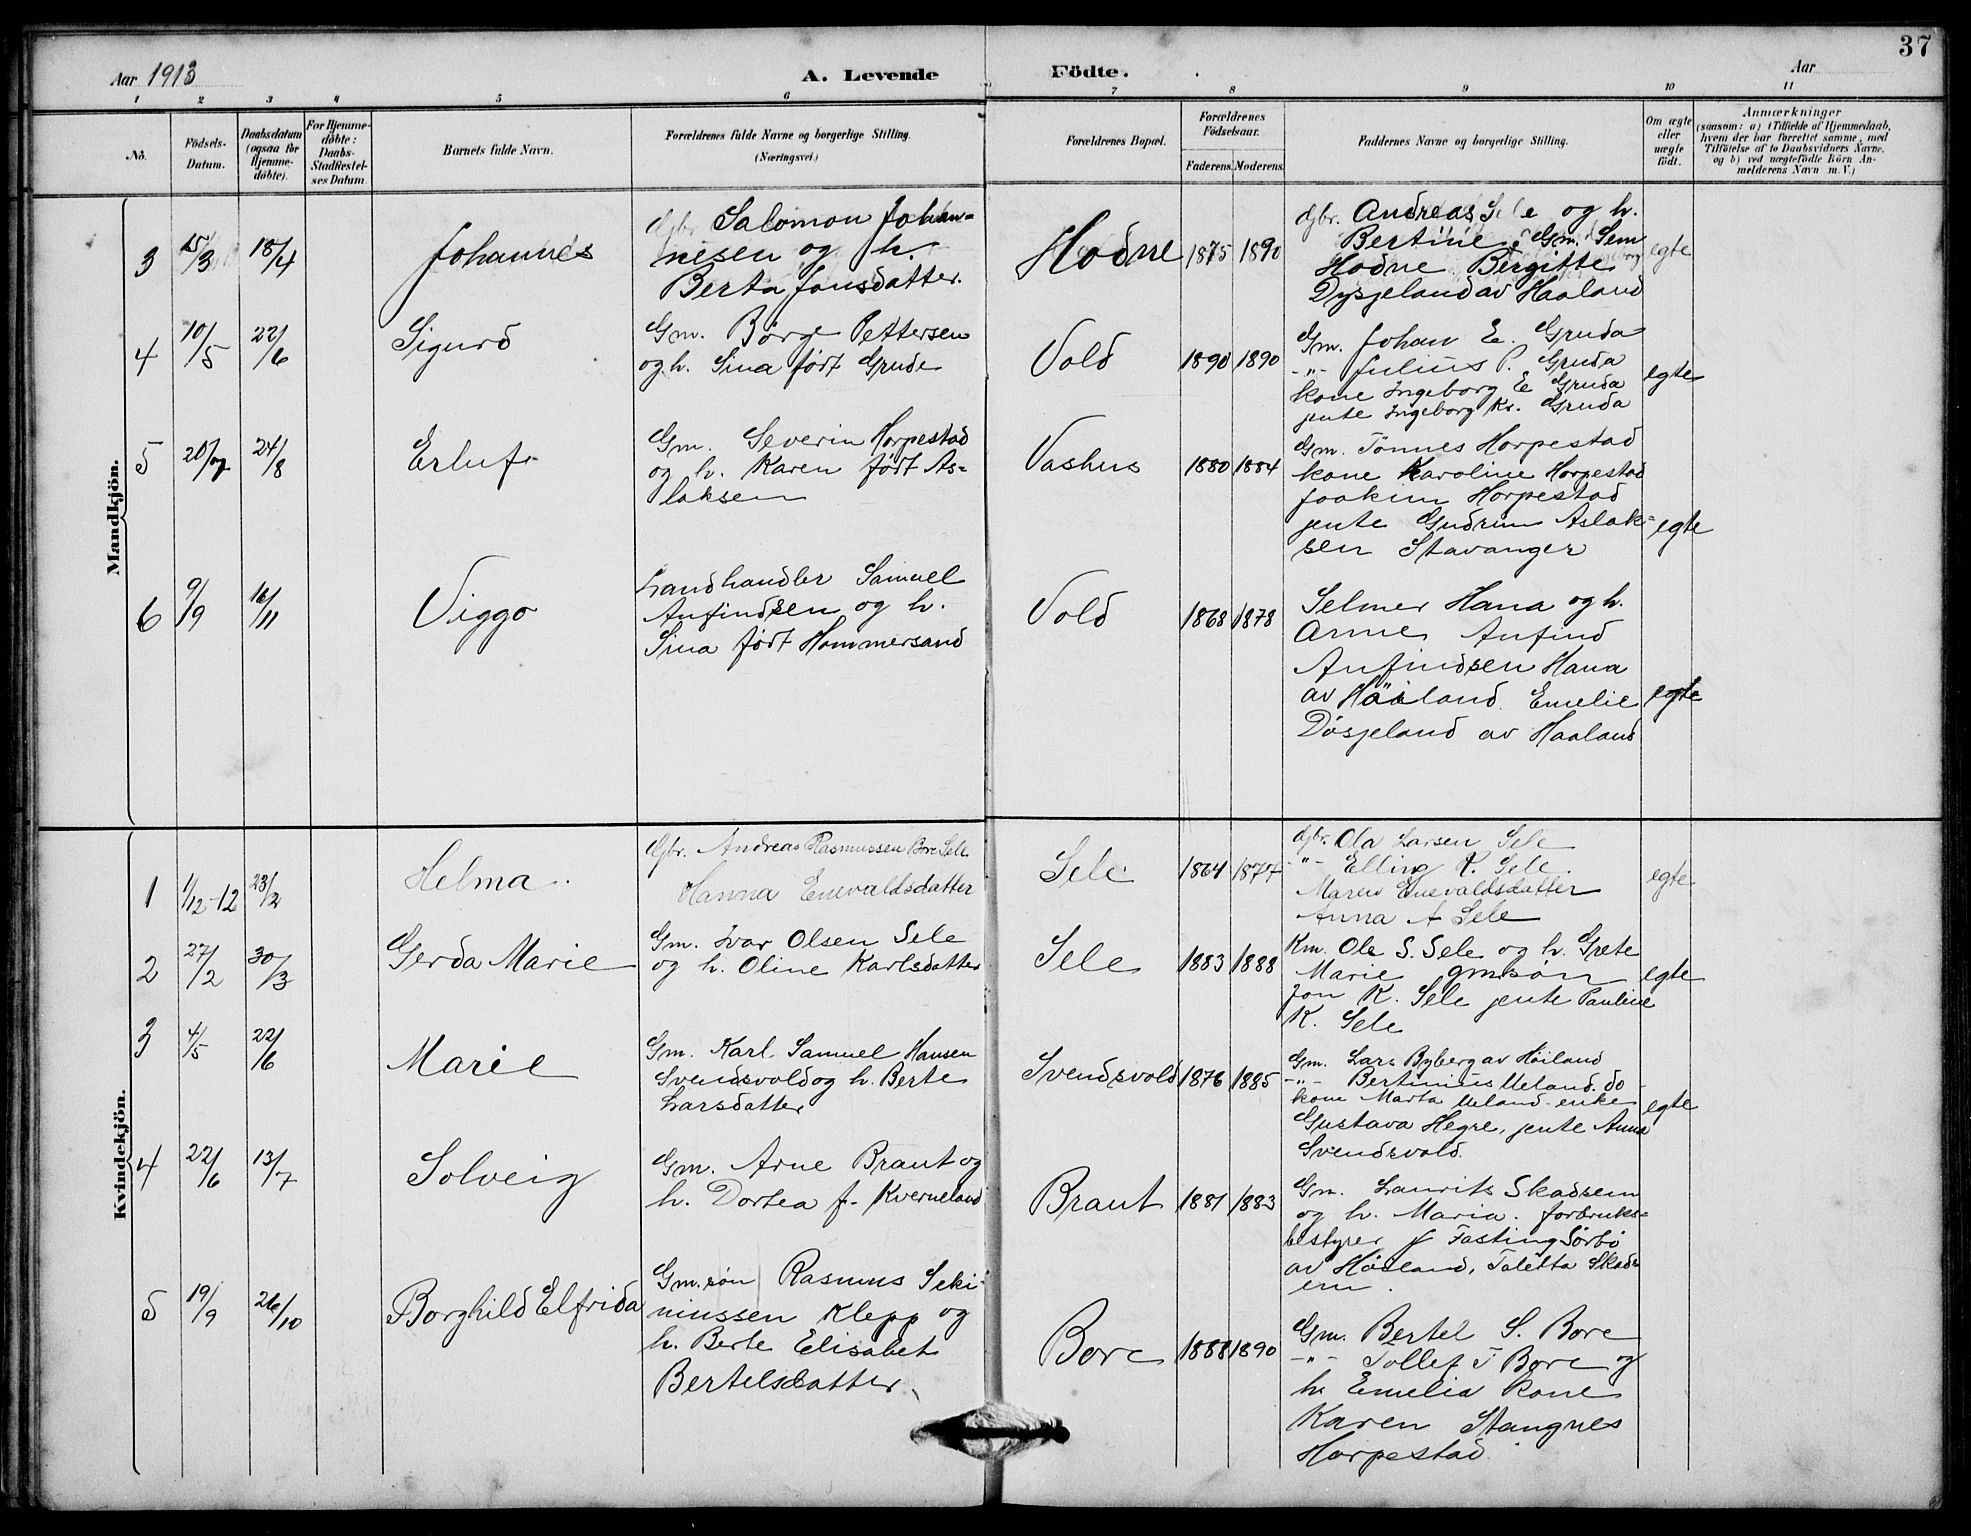 37
Aar 1913
A. Levende Födte.
Aar
1 2 3 4 5 6 7 8 9 10 11
No.
Födsels-Datum.
Daabsdatum (ogsaa for Hjemme-döbte).
For Hjemme-döbte: Daabs-Stadfæstel-ses Datum.
Barnets fulde Navn.
Forældrenes fulde Navne og borgerlige Stilling.
(Næringsvei.)
Forældrenes Bopæl.
Forældrenes Födselsaar.
Faderens. Moderens.
Faddernes Navne og borgerlige Stilling.
Om ægte eller uægte födt.
Anmærkninger
(saasom: a) i Tilfælde af Hjemmedaab,
hvem der har forrettet samme, med
Tilföielse af to Daabsvidners Navne,
og b) ved uægtefödte Börn An-
melderens Navn m. V.)
Mandkjön.
3 15/3 18/4 Johannes
Gbr. Salomon Johan-
nesen og h.
Berta Jonsdatter.
Hodne 1875 1890
Gbr. Andreas Sele og h.
Bertine, Gm. Sem
Hodne Bergitte
Dysjeland av Haaland
egte
4 10/5 22/6 Sigurd
Gm. Börge Pettersen
og h. Sina født Grude
Vold 1890 1890
Gm. Johan E. Gruda
-"- Julius P. Gruda
kone Ingeborg E Gruda
jente Ingeborg Kr. Gruda
egte
5 20/7 24/8 Erluf
Gm. Severin Horpestad
og h. Karen født As-
laksen
Vashus 1880 1884
Gm. Tönnes Horpestad
kone Karoline Horpestad
Joakim Horpestad
jente Gudrun Aslak-
sen Stavanger
egte
6 9/9 16/11 Viggo
Landhandler Samuel
Anfindsen og h.
Sina født Hommersand
Vold 1868 1878
Selmer Hana og h.
Anne, Anfind
Anfindsen Hana
av Höiland. Emelie
Dösjeland av Haaland
egte
Kvindekjön.
1 1/12-12 23/2 Helma.
Gbr. Andreas Rasmussen Bore Sele
Hanna Enevaldsdatter
Sele 1864 1877
Gbr. Ola Larsen Sele
-"- Elling K. Sele.
Maren Enevaldsdatter
Anna A Sele
egte
2 27/2 30/3 Gerda Marie
Gm. Ivar Olsen Sele
og h. Oline Karlsdatter
Sele 1883 1888
Km. Ole S. Sele og h. Grete
Marie gm.sön
Jon K. Sele jente Pauline
K. Sele
egte
3 4/5 22/6 Marie
Gm. Karl Samuel Hansen
Svendsvold og h. Berte
Larsdatter
Svendsvold 1876 1885
Gm. Lars Byberg av Höiland
-"- Bertinius Ueland. do -
kone Marta Ueland - enke
Gustava Hegre, jente Anna
Svendsvold.
egte
4 22/6 13/7 Solveig
Gm. Arne Braut og
h. Dortea f. Kverneland
Braut 1881 1883
Gm. Laurits Skadsem
og h. Maria. forbruks-
bestyrer J Fasting Sörbö
av Höiland, Taletta Skads
em.
5 19/9 26/10 Borghild Elfrida
Gm.søn Rasmus Seki-
niussen Klepp og
h. Berte Elisabet
Bertelsdatter
Bore 1888 1890
Gm. Bertel S. Bore
-"- Tollef T Bore og
h. Emelia kone
Karen Stangnes
Horpestad